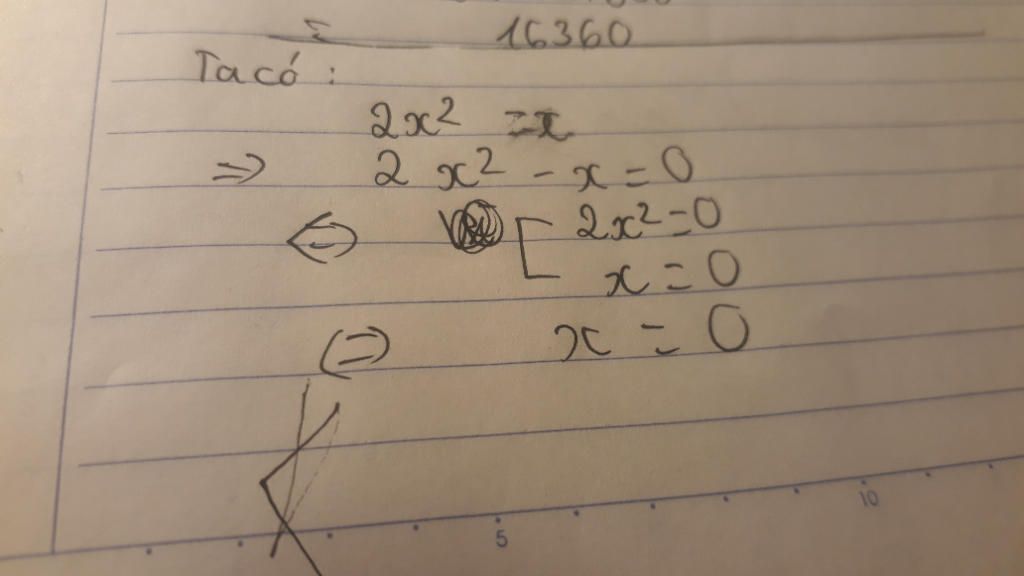 16360
Ta có :
2x² = x
=> 2x² - x = 0
<=> [ 2x² = 0
x = 0
<=> x = 0
5 10